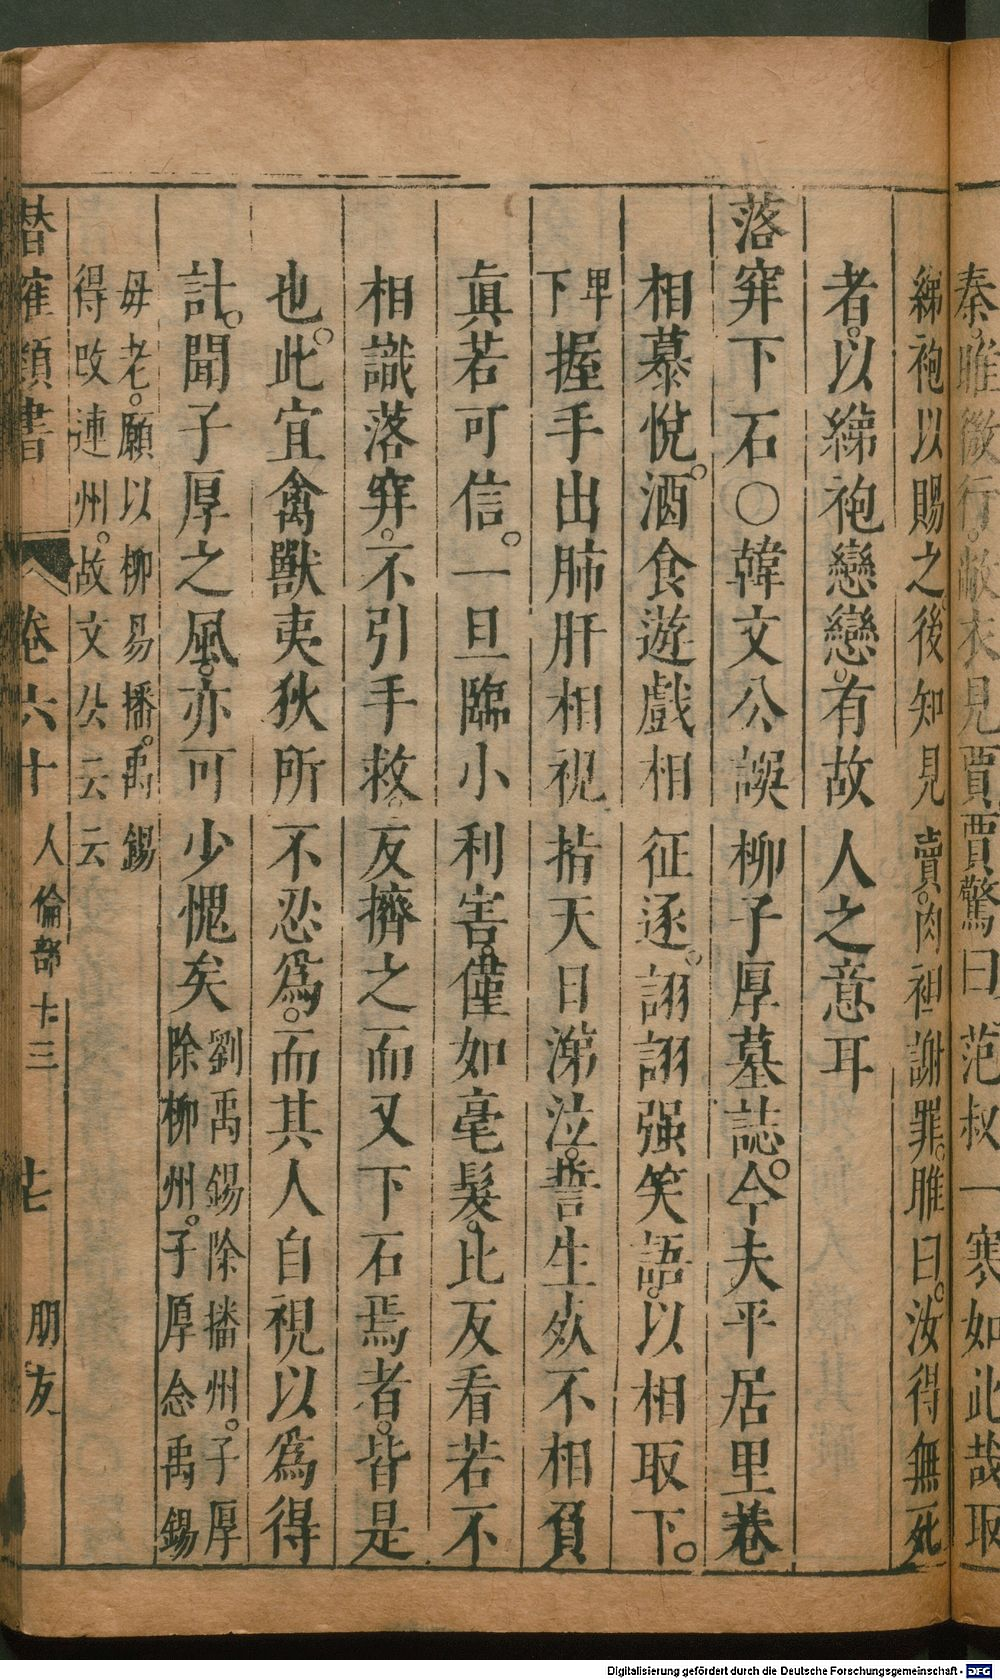 秦。雎微行。敝衣見賈賈驚曰。范叔一寒如此哉取
綈袍以賜之後知見賣。肉袒謝罪。雎曰。汝得無死
者。以綈袍戀戀。有故人之意耳
落穽下石○韓文公誤柳子厚墓誌。今夫平居里巷
相慕悅。酒食遊戲相征逐。詡詡强笑語。以相取下。
卑下握手出肺肝相視指天日涕泣。誓生死不相負
眞若可信。一旦臨小利害。僅如毫髮。比反看若不
相識落穽。不引手救。反擠之而又下石焉者。皆是
也。此宜禽獸夷狄所不忍爲。而其人自視以爲得
計。聞子厚之風。亦可少愧矣
劉禹錫除播州。子厚
除柳州。子厚念禹錫
毋老。願以柳易播。禹錫
得改連州。故文公云云
潛確類書 卷六十 人倫部十三 廿七 朋友
Digitalisierung gefördert durch die Deutsche Forschungsgemeinschaft - DFG